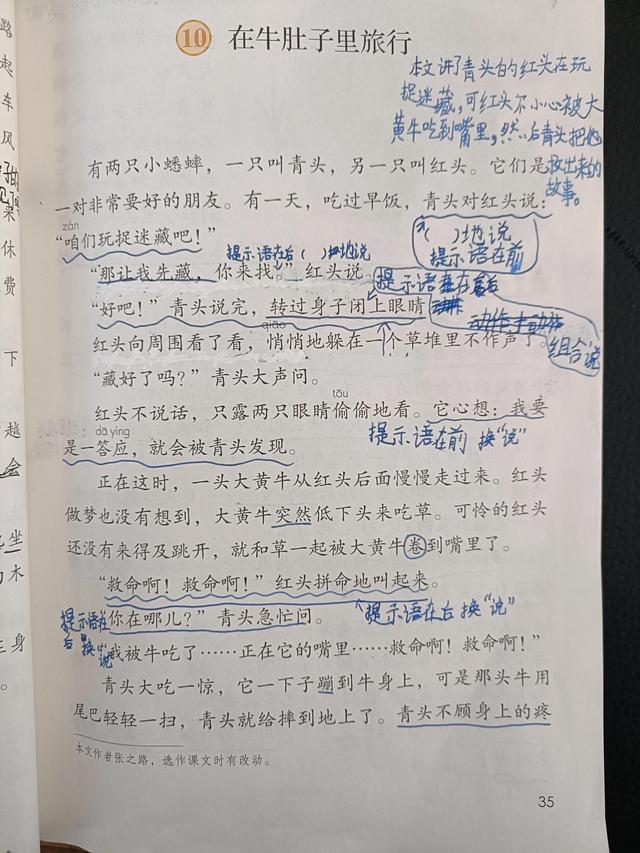 10 在牛肚子里旅行
本文讲了青头的红头在玩
捉迷藏，可红头不小心被大
黄牛吃到嘴里，然后青头把他
救出来的
故事。
有两只小蟋蟀，一只叫青头，另一只叫红头。它们是
一对非常要好的朋友。有一天，吃过早饭，青头对红头说：
zán
“咱们玩捉迷藏吧！”
（ ）地说
提示语在前
提示语在后（ ）地说
“那让我先藏，你来找。”红头说。
提示语在后
“好吧！”青头说完，转过身子闭上眼睛
qiāo
组合说
红头向周围看了看，悄悄地躲在一个草堆里不作声了。
“藏好了吗？”青头大声问。
tōu
红头不说话，只露两只眼睛偷偷地看。它心想：我要
dā yìng
提示语在前 换“说”
是一答应，就会被青头发现。
正在这时，一头大黄牛从红头后面慢慢走过来。红头
做梦也没有想到，大黄牛突然低下头来吃草。可怜的红头
还没有来得及跳开，就和草一起被大黄牛卷到嘴里了。
“救命啊！救命啊！”红头拼命地叫起来。
提示语在后 换“说”
提示语在
后 换“说”
“你在哪儿？”青头急忙问。
“我被牛吃了……正在它的嘴里……救命啊！救命啊！”
青头大吃一惊，它一下子蹦到牛身上，可是那头牛用
尾巴轻轻一扫，青头就给摔到地上了。青头不顾身上的疼
本文作者张之路，选作课文时有改动。
35
路
起
车
风
来
休
费
下
越
会
坐
木
身